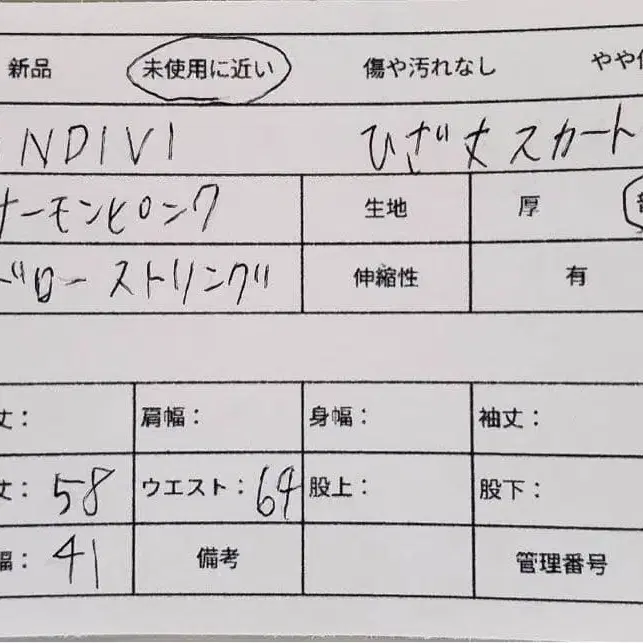 新品 未使用に近い 傷や汚れなし やや
INDIVI ひざ丈スカート
サーモンピンク 生地 厚
ドローストリング 伸縮性 有
丈： 肩幅： 身幅： 袖丈：
丈：58 ウエスト：64 股上： 股下：
幅：41 備考 管理番号